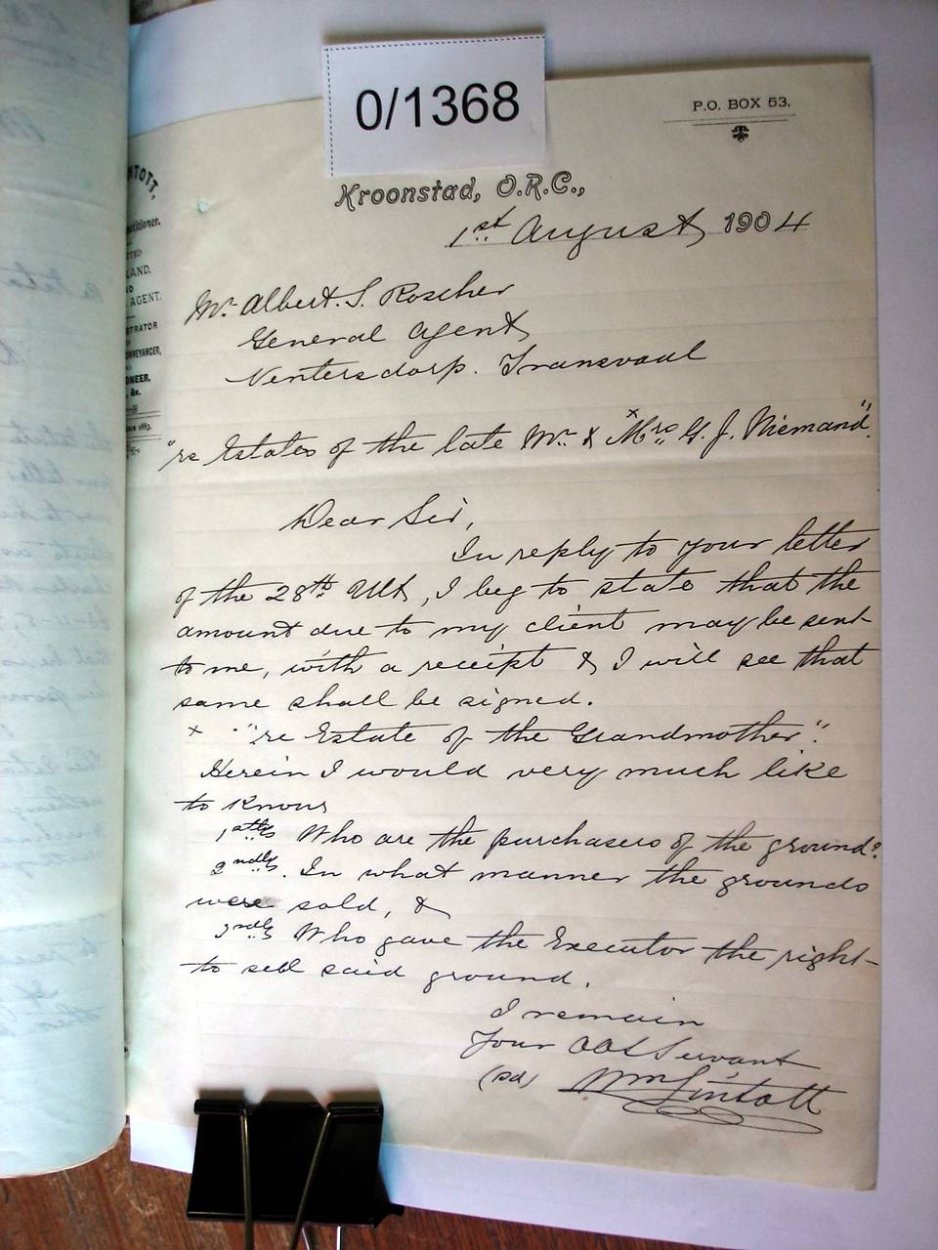 0/1368
P.O. BOX 53.
Kroonstad, O.R.C.,
1st August, 1904
NTOTT,
LAND,
AGENT.
TRATOR
NVEYANCER,
ONEER,
&c.
Mr. Albert. S. Roscher
General Agent,
Ventersdorp. Transvaal
"re Estates of the late Mr. & x Mrs. G. J. Niemand".
Dear Sir,
In reply to your letter
of the 28th Ult, I beg to state that the
amount due to my client may be sent
to me, with a receipt & I will see that
same shall be signed.
x "re Estate of the Grandmother".
Herein I would very much like
to know,
1stly Who are the purchasers of the ground?
2ndly. In what manner the grounds
were sold, &
3rdly Who gave the Executor the right
to sell said ground.
I remain
Your Obt Servant
(sd) Wm Lintott